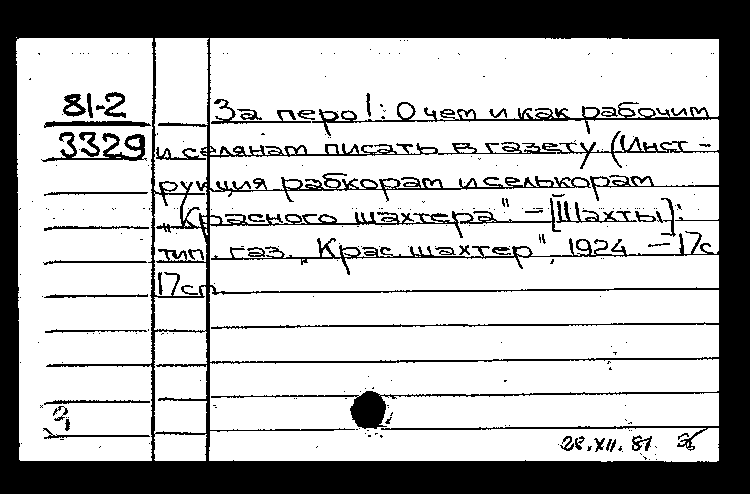 81-2
3329
За перо!: О чем и как рабочим
и селянам писать в газету (Инст-
рукция рабкорам и селькорам
„Красного шахтера". – [Шахты]:
тип. газ. „Крас. шахтер", 1924 – 17с.
17см.
28.XII.81